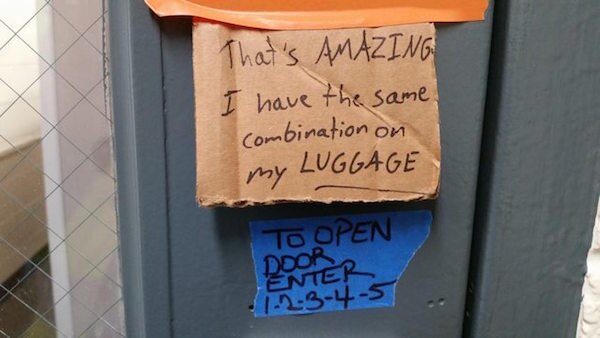 That's AMAZING
I have the same
combination on
my LUGGAGE
TO OPEN
DOOR
ENTER
1-2-3-4-5